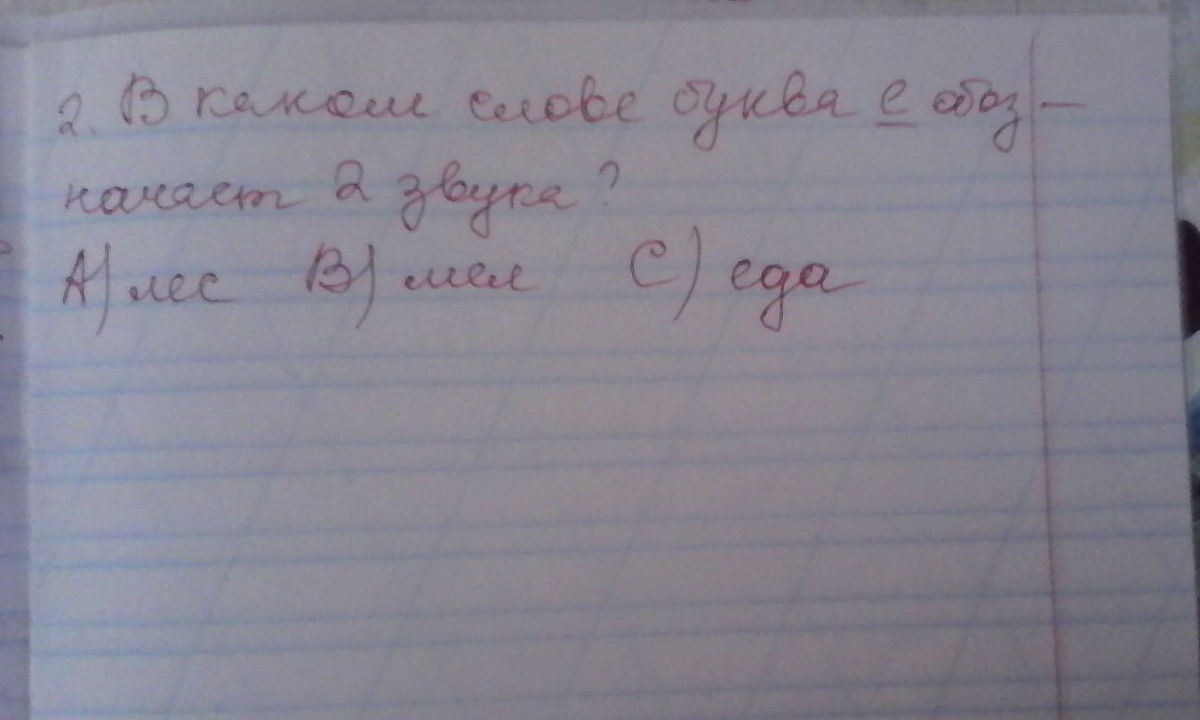 2. В каком слове буква е обоз-
начает 2 звука?
А) лес В) мел С) еда